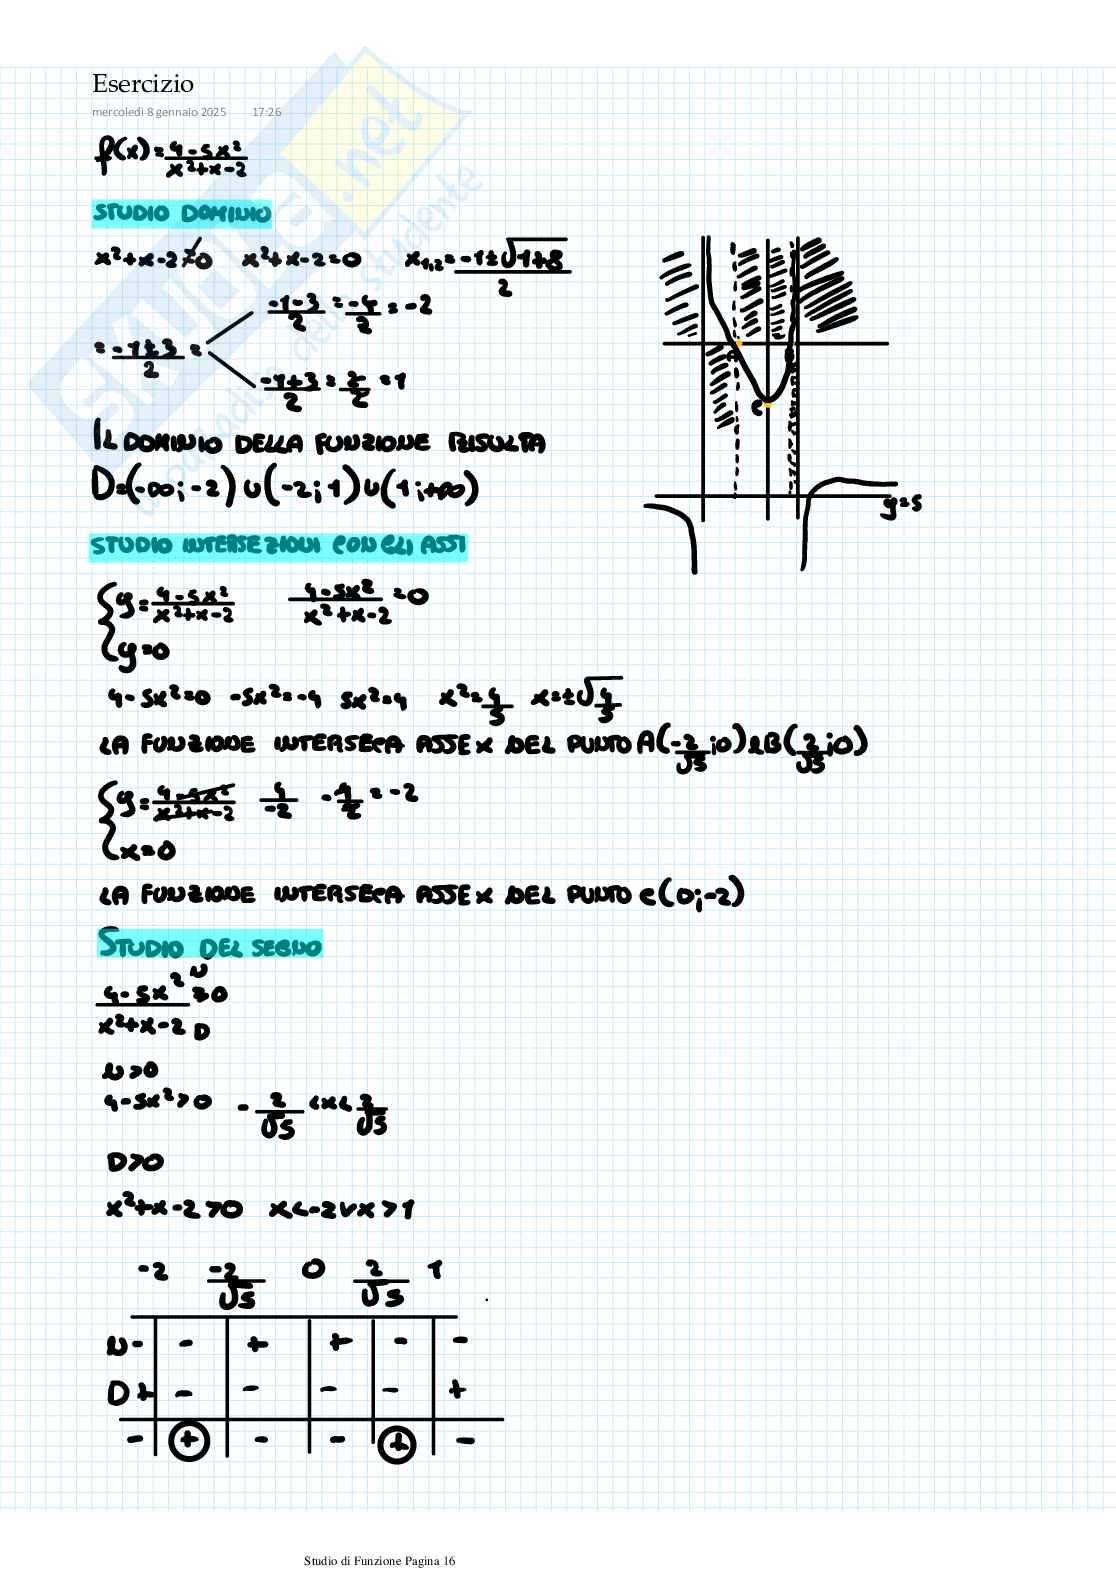 Esercizio
mercoledì 8 gennaio 2025 17:26
f(x) = (4-5x²)/(x²+x-2)
STUDIO DOMINIO
x²+x-2≠0 x²+x-2=0 x₁,₂ = (-1±√(1+8))/2
(-1-3)/2 = -4/2 = -2
= (-1±3)/2 =
(-1+3)/2 = 2/2 = 1
IL DOMINIO DELLA FUNZIONE RISULTA
D=(-∞;-2) ∪ (-2;1) ∪ (1;+∞)
y=5
STUDIO INTERSEZIONI CON GLI ASSI
{ y = (4-5x²)/(x²+x-2) (4-5x²)/(x²+x-2) = 0
y=0
4-5x²=0 -5x²=-4 5x²=4 x²=4/5 x=±√(4/5)
LA FUNZIONE INTERSECA ASSE X DEL PUNTO A(-2/√5;0) e B(2/√5;0)
{ y = (4-5x²)/(x²+x-2) 4/-2 -4/2 = -2
x=0
LA FUNZIONE INTERSECA ASSE X DEL PUNTO C(0;-2)
STUDIO DEL SEGNO
(4-5x²)/(x²+x-2) ≥0 N D
N>0
4-5x²>0 -2/√5 <x< 2/√5
D>0
x²+x-2>0 x<-2 v x>1
-2 -2/√5 0 2/√5 1
N - - + + - -
D + - - - - +
- + - - + -
A
B
C
SKUOLA.net
Studio di Funzione Pagina 16